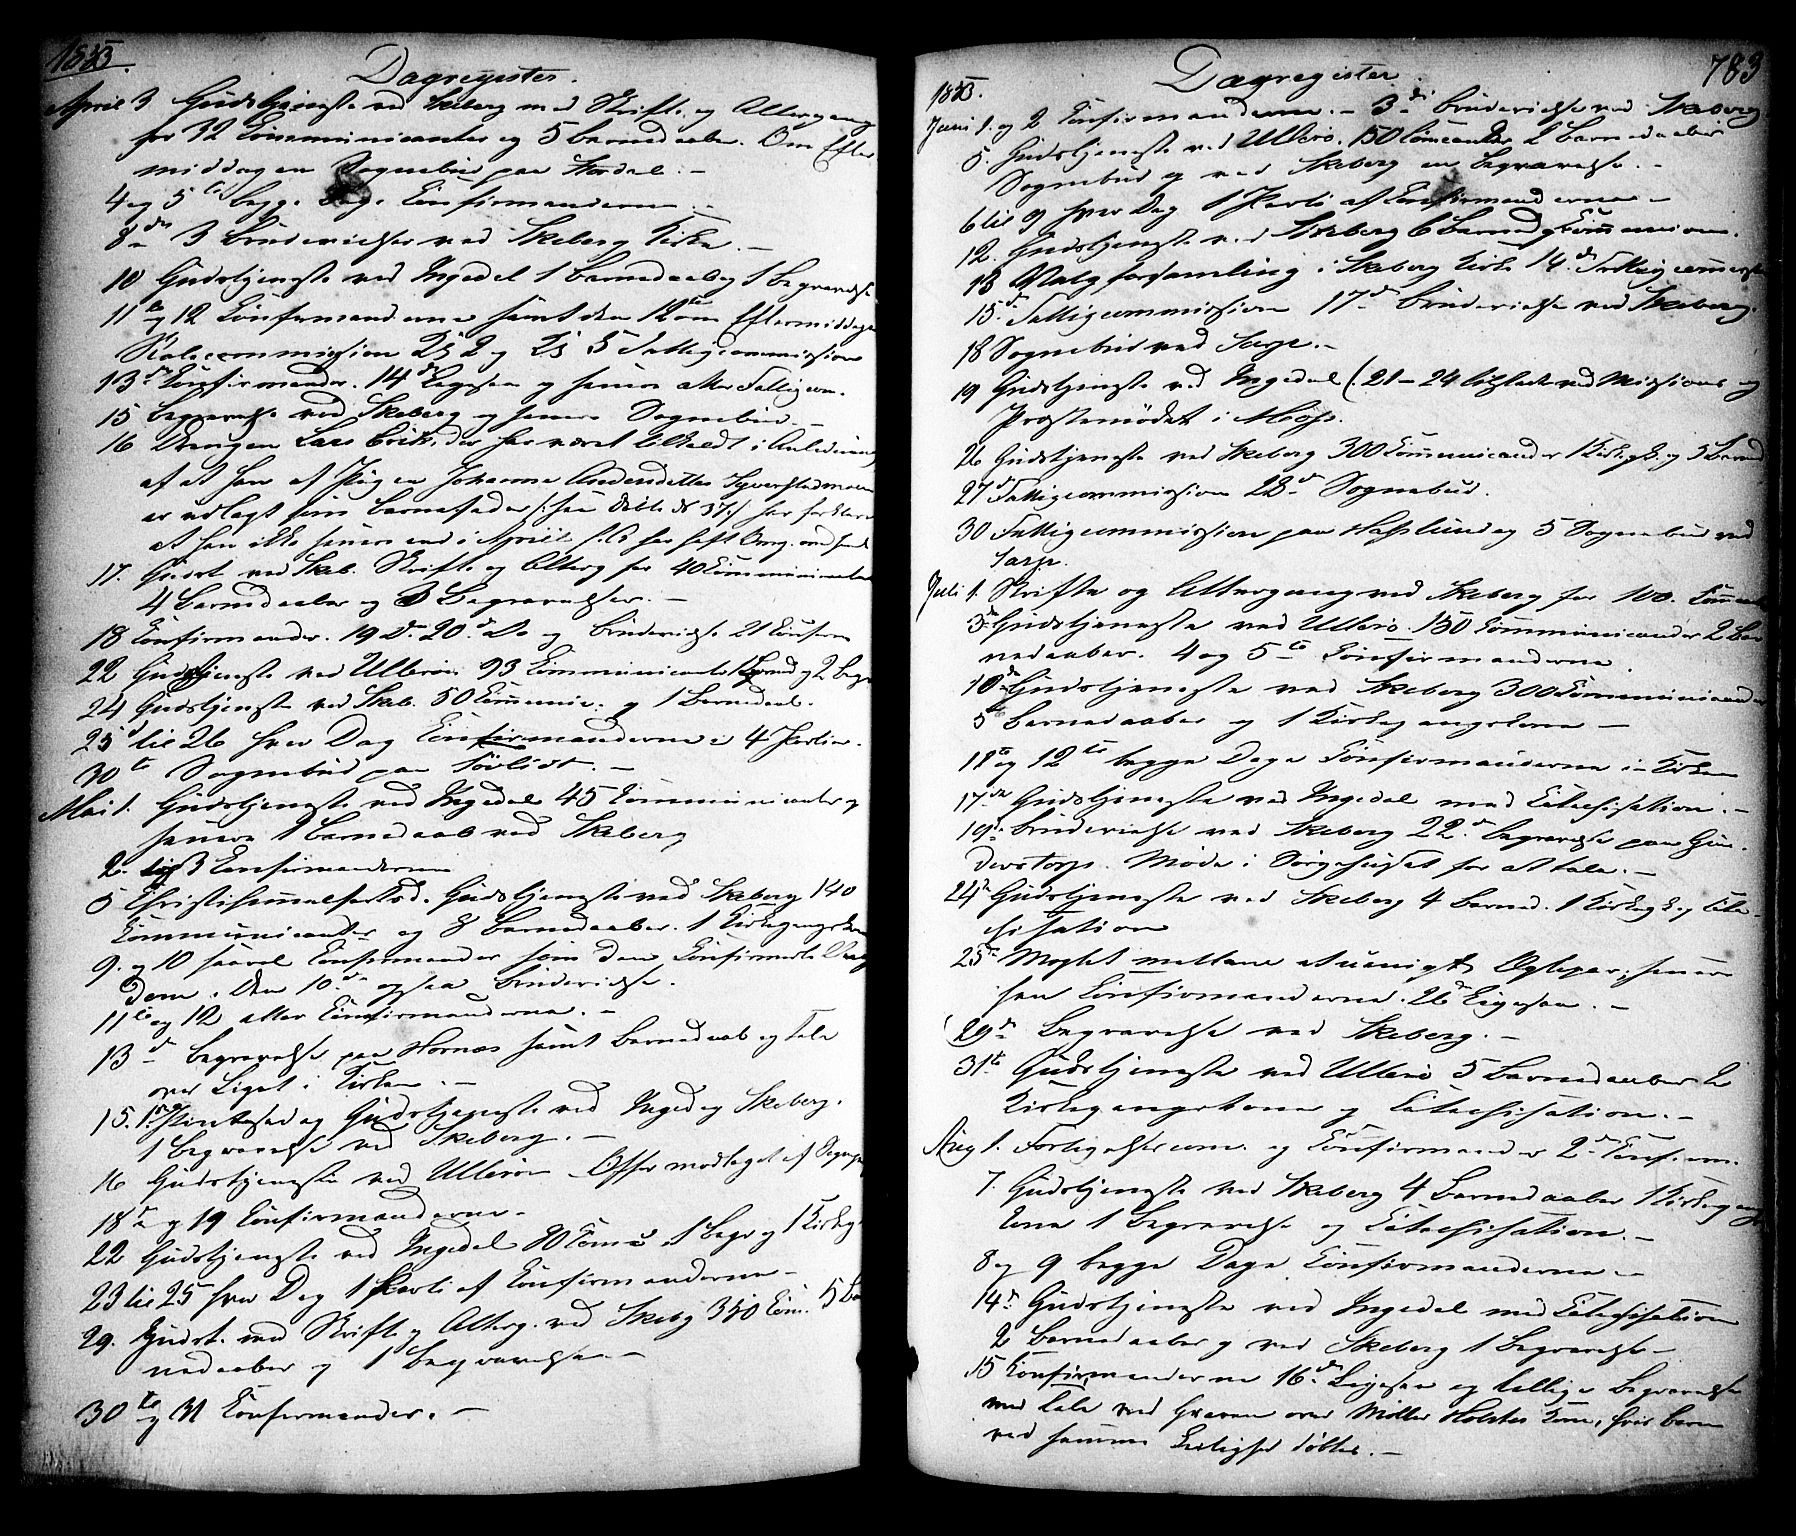 1853.
Dagregister.
April 3 Gudstjeneste ved Skeberg med Skrift. og Altergang
for 32 Communicanter og 5 Barnedaaber. Om Efter
middagen Sognebud paa
4 og 5te begge Dage Confirmanderne.
8de 3 Brudevielser ved Skeberg Kirke. —
10 Gudstjeneste ved Ingedal 1 Barnedaab og 1 Begravelse
11te og 12 Confirmanderne samt den 12 om Eftermiddagen
Skolecommission Fattigcommission
13de Confirmander. 14de Ligesaa og senere atter Fattigcom.
15 Begravelse ved Skeberg og senere Sognebud. —
16 Drengen Lars der har været tilkaldt i Anledning
af at han af Pigen Johanne Andersdatter
er udlagt som Barnefader har forklaret
at han ikke senere end i April
17. Gudst. ved Skeb. Skrifte og Alterg for 40 Communicanter
4 Barnedaaber og 3 Begravelser. —
18 Confirmander. 19 Do. 20de Do og Brudevielse 21 Confirm
22 Gudstjeneste ved Ullerøe 93 Communicanter 1 Barned og 2 Begr
24 Gudstjeneste ved Skeb. 50 Communic. og 1 Barnedaab.
25 til 26 hver Dag Confirmanderne i 4 Partier.
30te Sognebud paa
Mai 1. Gudstjeneste ved Ingedal 45 Communicanter og
senere 1 Barnedaab ved Skeberg
2. og 3 Confirmanderne
5 Christi Himmelfartsd. Gudstjeneste ved Skeberg 140
Communicanter og 8 Barnedaaber. 1 Kirkegangskone
9. og 10 saavel Confirmander som den Confirmerte Ung
dom. Den 10de ogsaa Brudevielse.
11te og 12 atter Confirmanderne. —
13de Begravelse paa Hornæs samt Barnedaab og Tale
over Liget i Kirken. —
15. 1ste Pintsedag Gudstjeneste ved Inged og Skeberg.
1 Begravelse ved Skeberg. —
16 Gudstjeneste ved Ullerøe Offer modtaget af
18de og 19 Confirmanderne.
22 Gudstjeneste ved Ingedal 80 Comm. 1 Begr og 1 Kirkeg.
23 til 25 hver Dag 1 Parti af Confirmanderne —
29. Gudst. med Skrift og Alterg. ved Skeberg 350 Com. 5 Bar
nedaaber og 1 Begravelse. —
30te og 31 Confirmander. —
783
1853.
Dagregister.
Juni 1. og 2 Confirmanderne. — 3die Brudevielse ved Skeberg
5. Gudstjeneste ved Ullerø. 150 Comcanter 2 Barnedaaber
Sognebud og ved Skeberg en Begravelse. —
6 til 9 hver Dag 1 Parti af Confirmanderne —
12. Gudstjeneste ved Skeberg 6 Barned og Communion.
13 Valgforsamling i Skeberg Kirke 14de Fattigcommission
15de Fattigcommission 17de Brudevielse ved Skeberg.
18 Sognebud ved Sarp. —
19 Gudstjeneste ved Ingedal (: 21 — 24 tilstede ved Missions og
Præstemødet i Moss.
26 Gudstjeneste ved Skeberg 300 Communicanter 1 Kirkegk. og 3 Barned
27de Fattigcommission 28de Sognebud.
30 Fattigcommission paa Hafslund og 5 Sognebud ved
Sarp.
Juli 1. Skrifte og Altergang ved Skeberg for 100. Comm
3die Gudstjeneste ved Ullerø. 150 Communicanter 2 Bar
nedaaber. 4 og 5te Confirmanderne.
10de Gudstjeneste ved Skeberg 300 Communicanter
5 Barnedaaber og 1 Kirkegangskone —
11te og 12te begge Dage Confirmanderne i Kirken
17de Gudstjeneste ved Ingedal med Catechisation. —
19de Brudevielse ved Skeberg 22de Begravelse paa Gun
derstorp. Møde i Sørgehuset for at tale. —
24de Gudstjeneste ved Skeberg 4 Barned. 1 Kirkegk. og Cate
chisation
25de Meglet mellem et uenigt Ægtepar, senere
saa Confirmanderne. 26de Ligesaa. —
(29de Begravelse ved Skeberg. —
31te Gudstjeneste ved Ullerø 5 Barnedaaber 2
Kirkegangskoner og Catechisation. —
Aug 1. Forligelsescom. og Confirmander 2den Confirm.
7. Gudstjeneste ved Skeberg 4 Barnedaaber 1 Kirkegangs
kone 1 Begravelse og Catechisation. —
8 og 9 begge Dage Confirmanderne —
14de Gudstjeneste ved Ingedal med Catechisation
2 Barnedaaber og ved Skeberg 1 Begravelse —
15 Confirmanderne 16de Ligesaa og tillige Begravelse
med Tale ved Graven over Møller Holsts Kone, hvis Barn
ved samme Leilighed døbtes. —